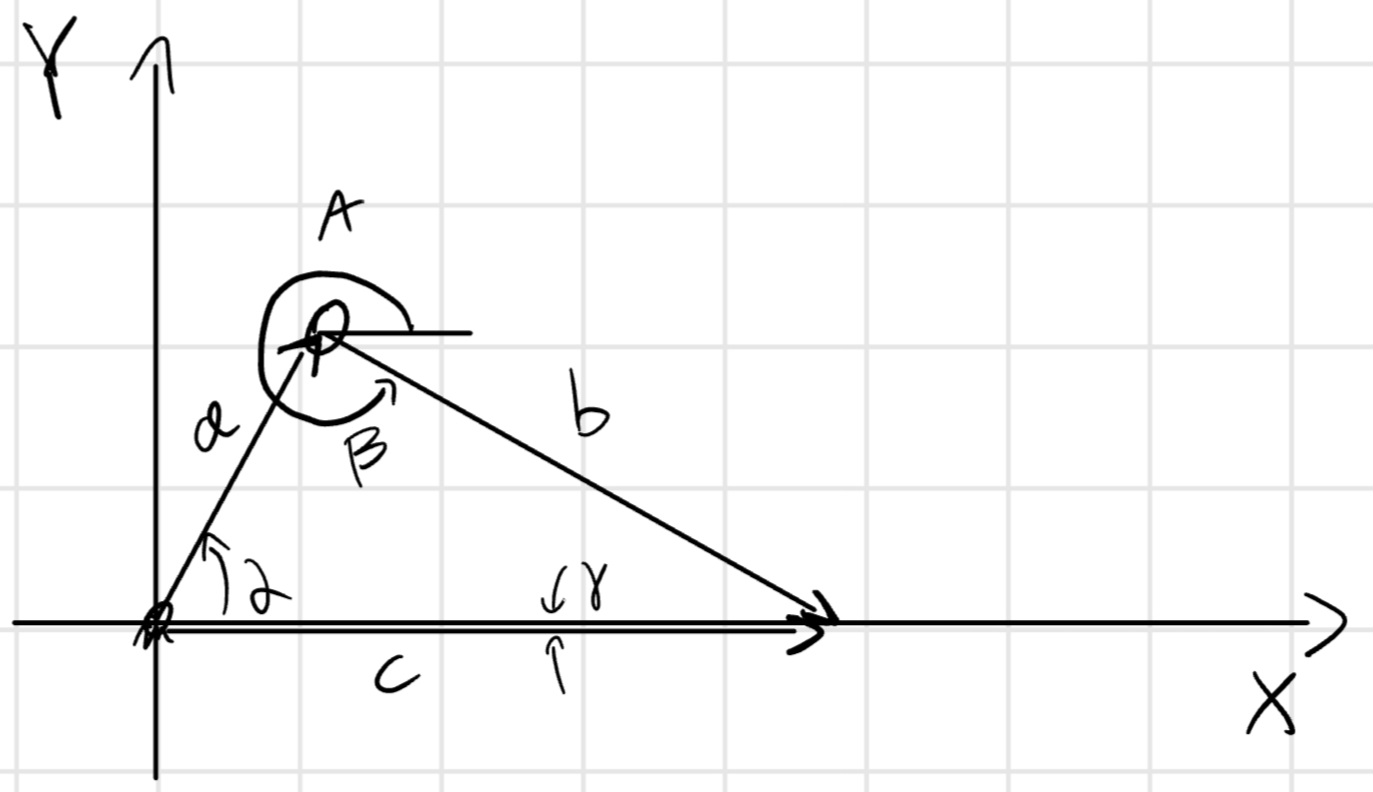 Y
A
a
b
β
α
γ
c
X